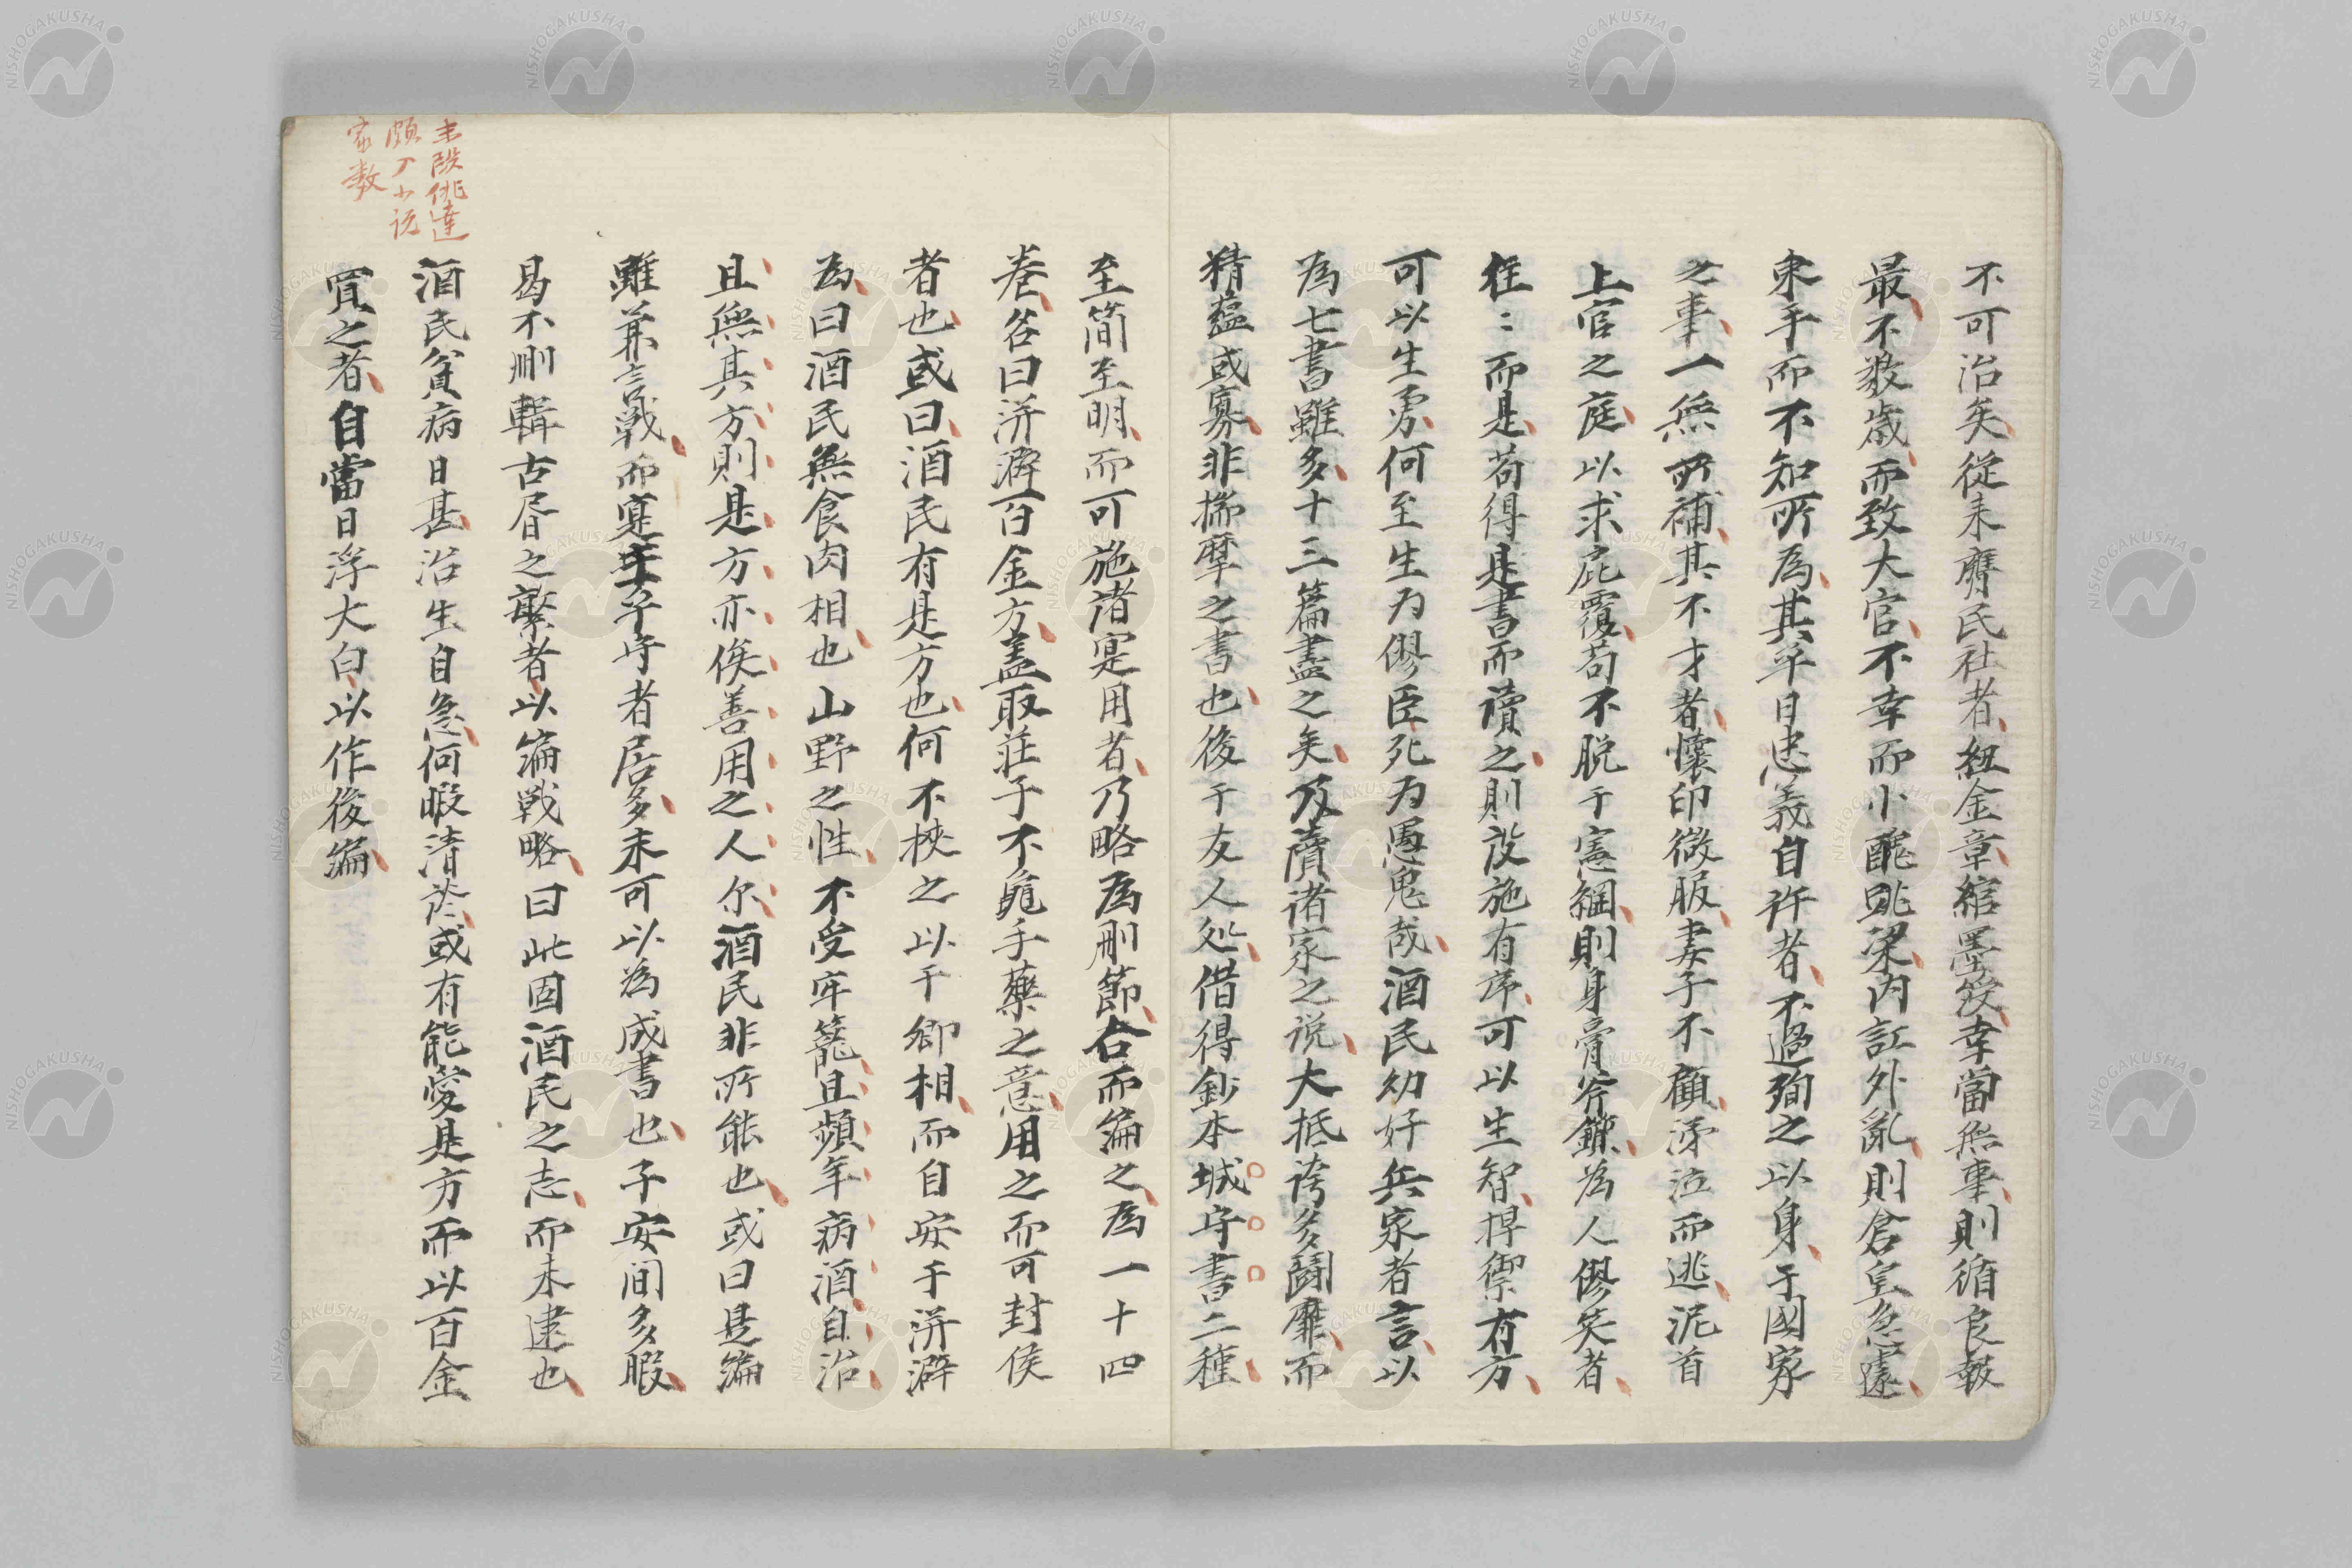 不可治矣從来膺民社者紐金章綰墨綬幸當無事則循良報
最不数歳而致大官不幸而小醜跳梁内訌外亂則倉皇急遽
束手而不知所為其平日忠義自許者不過殉之以身于國家
之事一無所補其不才者懐印微服妻子不顧涕泣而逃泥首
上官之庭以求庇覆苟不脱于憲綱則身膏斧鑕為人僇笑者
往〻而是苟得是書而讀之則設施有序可以生智捍禦有方
可以生勇何至生为僇臣死为愚鬼哉酒民幼好兵家者言以
為七書雖多十三篇盡之矣及讀諸家之説大抵誇多鬪靡而
精蘊或寡非揣摩之書也後于友人処借得鈔本城守書二種
至簡至明而可施诸寔用者乃略為刪節合而編之為一十四
巻名曰洴澼百金方盖取莊子不龜手藥之意用之而可封侯
者也或曰酒民有是方也何不挾之以干卿相而自安于洴澼
為曰酒民無食肉相也山野之性不受牢籠且頻年病酒自治
且無其方則是方亦俟善用之人尔酒民非所能也或曰是編
雖兼言戦而寔主乎守者居多未可以為成書也子安間多暇
曷不刪輯古昔之繁者以編戦略曰此固酒民之志而未逮也
酒民貧病日甚治生自急何暇清〻或有能愛是方而以百金
買之者自當日浮大白以作後編
末段佻達
頗丁小説
家数